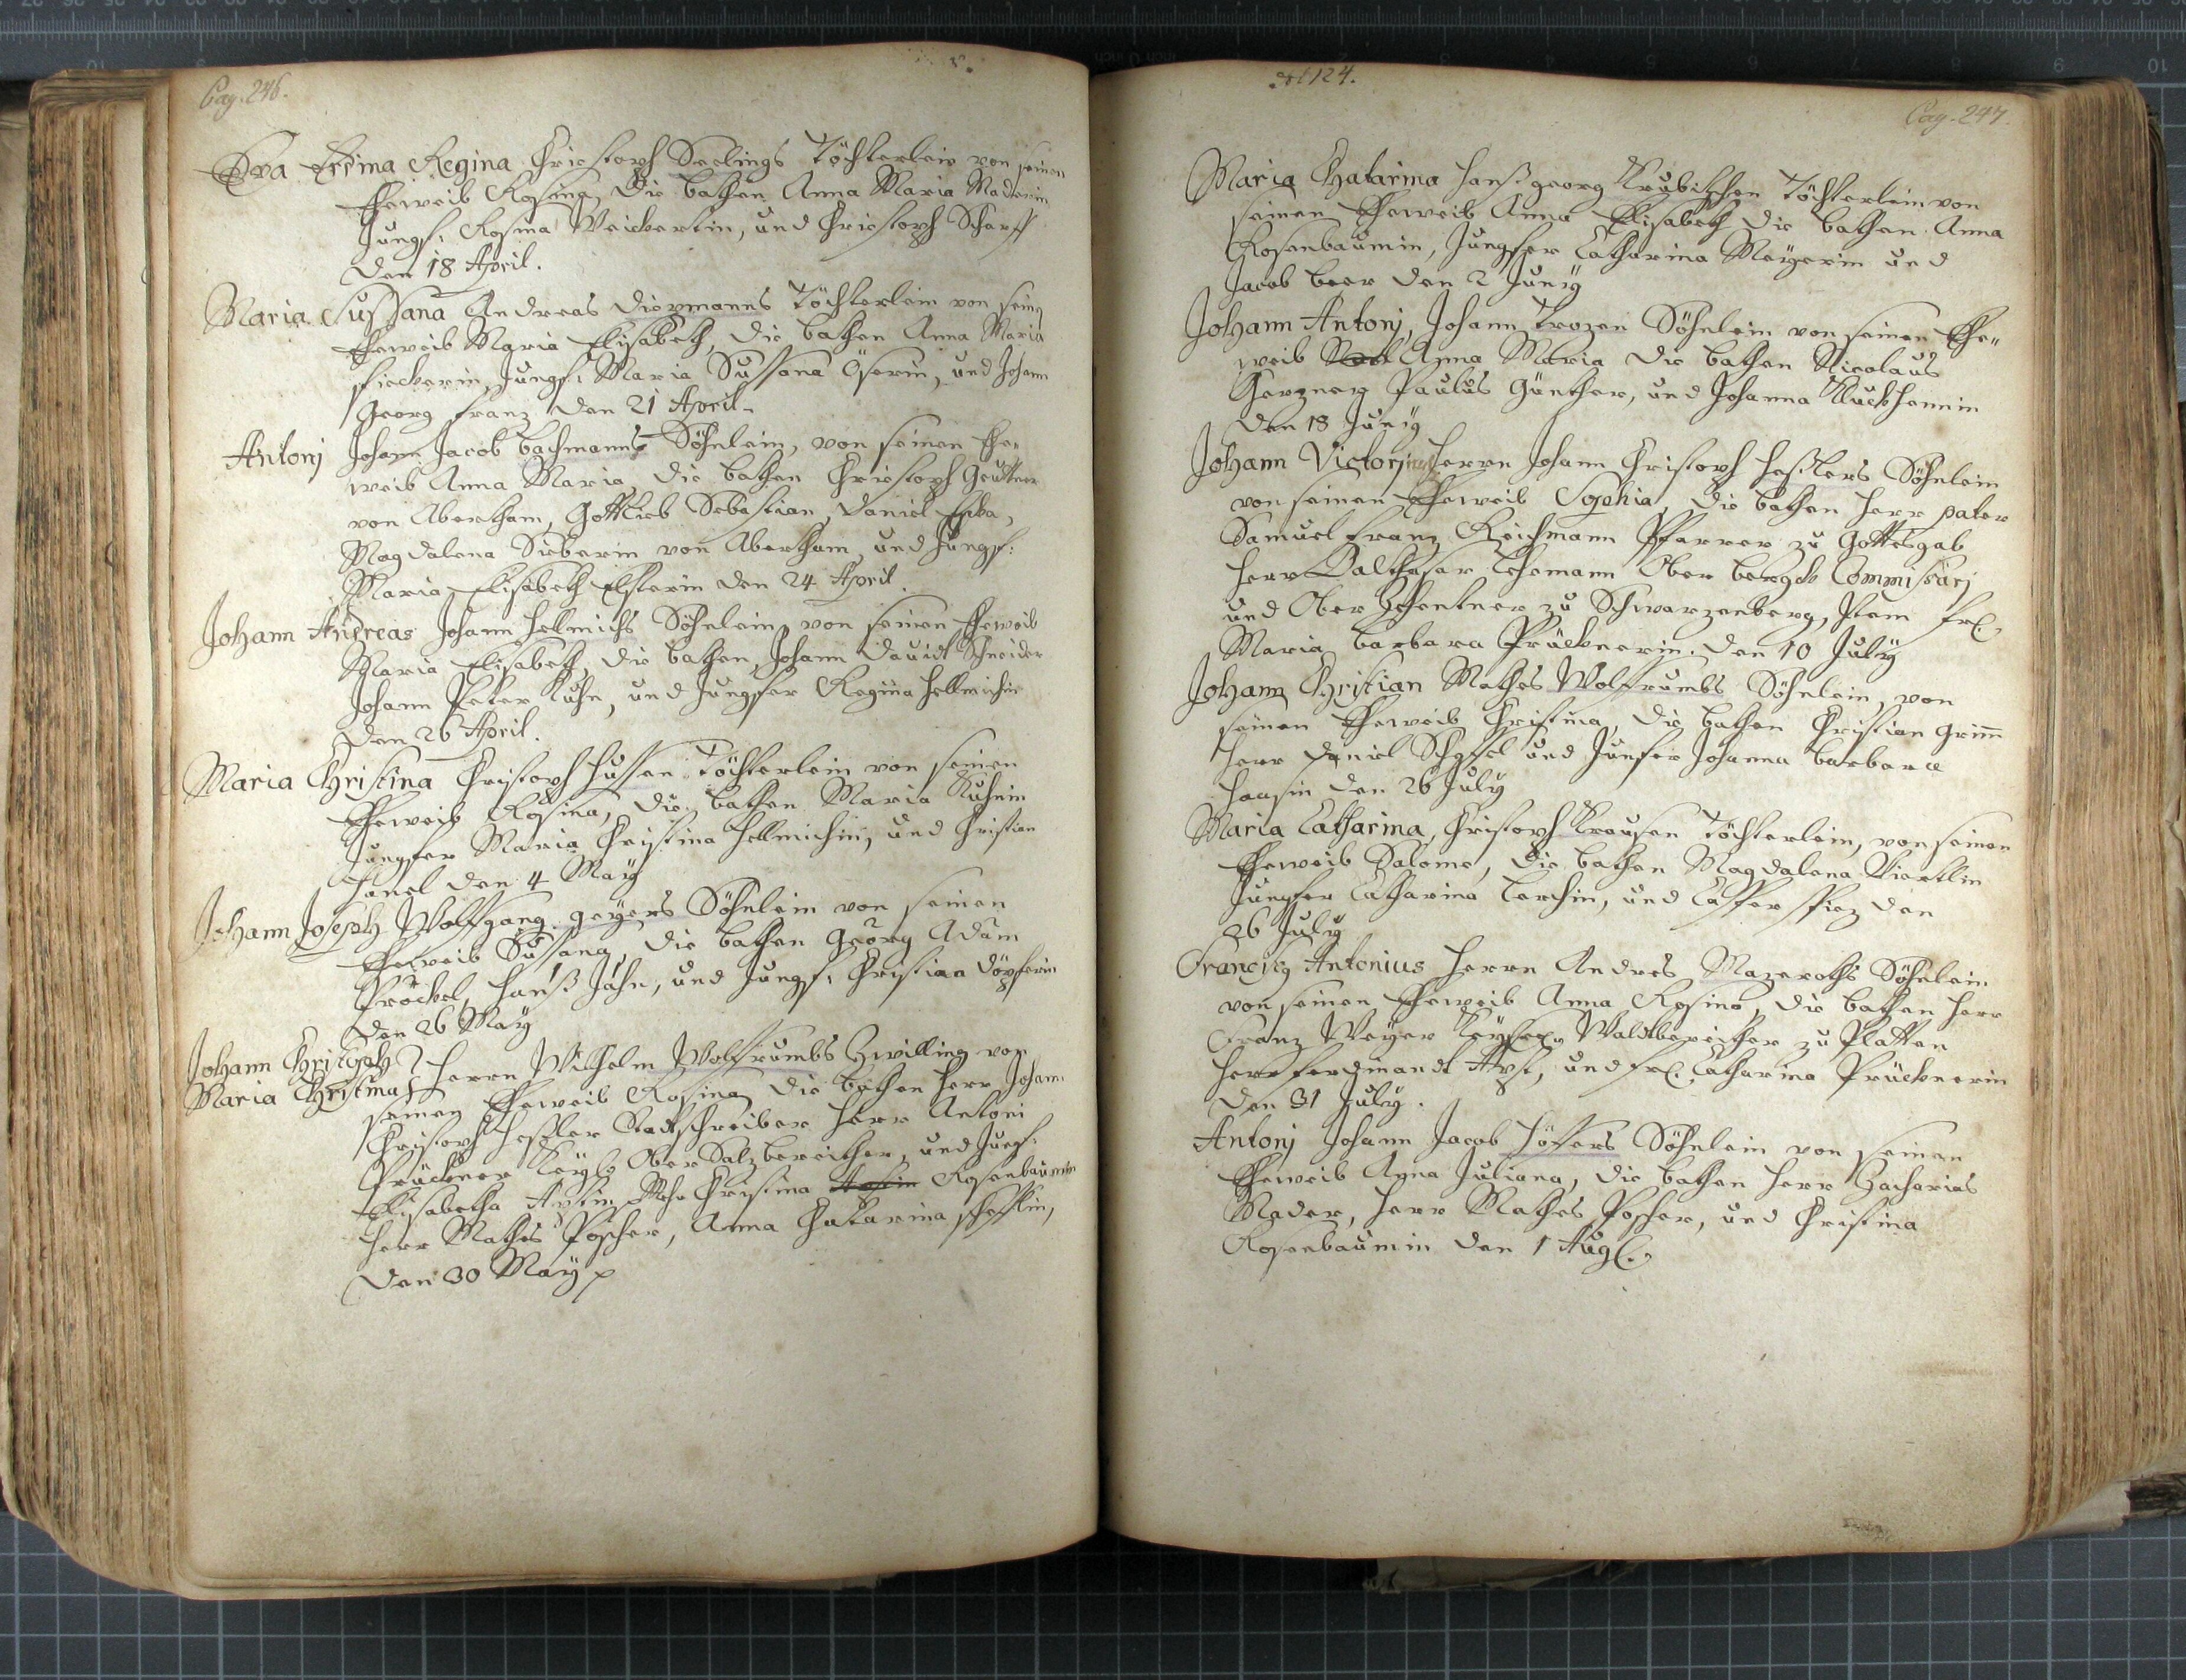 Pag. 246.
Eva Rosina Regina Christoph Seelings Töchterlein von seinen
Eheweib Rosina, die bathen Anna Maria Maderin
Jungf: Rosina Weickertin, und Christoph Scharff
den 18 April.
Maria Sussana Andreas diezmanns Töchterlein von sein
Eheweib Maria Elisabeth, die bathen Anna Maria
Jungf: Maria Sussana Öserin, und Johann
Georg Franz den 21 April.
Antonj Johann Jacob bachmanns Söhnlein, von seinen Ehe-
weib Anna Maria, die bathen Christoph
von Abertham, Gottlieb Sebastian, Daniel
Magdalena Sieberin von Abertham, und Jungf:
Maria Elisabeth Elsterin den 24 April.
Johann Andreas Johann Hellmichs Söhnlein, von seinen Eheweib
Maria Elisabeth, die bathen, Johann David Schneider
Johann Peter Kuhn, und Jungfer Regina Hellmichin
den 26 April.
Maria Christina Christoph Hussen Töchterlein von seinen
Eheweib Rosina, die bathen Maria Kuhnin
Jungfer Maria Christina Hellmichin, und Christian
Hanel den 4 May
Johann Joseph Wolffgang geyers Söhnlein von seinen
Eheweib Sussana, die bathen Georg Adam
Kröckel, Hanß Jahn, und Jungf: Christiana döpferin
den 26 May
Johann Christoph
Maria Christina Herrn Wilhelm Wolffrumbs Zwilling von
seinen Eheweib Rosina, die bathen Herr Johann
Christoph Heßler Stadtschreiber Herr Antoni
Prückner Keyß: Ober Salzbereither, und Jungf:
Elisabetha Christina Rosenbaumin
Herr Mathes Poscher, Anna Chatarina
den 30 May
fol 124.
Pag. 247.
Maria Chatarina Hanß georg Töchterlein von
seinen Eheweib Anna Elisabeth die bathen Anna
Rosenbaumin, Jungfer Catharina Meyerin und
Jacob beer den 2 Juny
Johann Antonj, Johann Trozen Söhnlein von seinen Ehe-
weib Anna Maria die bathen Nicolaus
Herzner Paulus Günther, und Johanna Kluckhannin
den 18 Juny
Johann Victorinus Herrn Johann Christoph Heßlers Söhnlein
von seinen Eheweib Sophia, die bathen Herr pater
Samuel Franz Reichmann Pfarrer zu Gottesgab
Herr Balthasar Lehemann Ober bergk Commissarj
und Ober Zehentner zu Schwarzenberg, Item Fr:
Maria barbara Prücknerin. den 10 July
Johann Christian Mathes Wolffrumbs Söhnlein, von
seinen Eheweib Christina, die bathen Christian Grimm
Herr Daniel und Junfer Johanna barbara
Haasin den 26 July
Maria Catharina, Christoph Krausen Töchterlein, von seinen
Eheweib Salome, die bathen Magdalena Viertlin
Jungfer Catharina Lerchin, und Casper den
26 July
Franciscg Antonius Herrn Andres Mazeroths Söhnlein
von seinen Eheweib Anna Rosina, die bathen Herr
Franz Meyer Keyser: Waldbereither zu Platten
Herr Ferdinandt und Fr: Catharina Prücknerin
den 31 July.
Antonj Johann Jacob Höffers Söhnlein von seinen
Eheweib Anna Juliana, die bathen Herr Zacharias
Mader, Herr Mathes Poscher, und Christina
Rosenbaumin den 1 Aug: